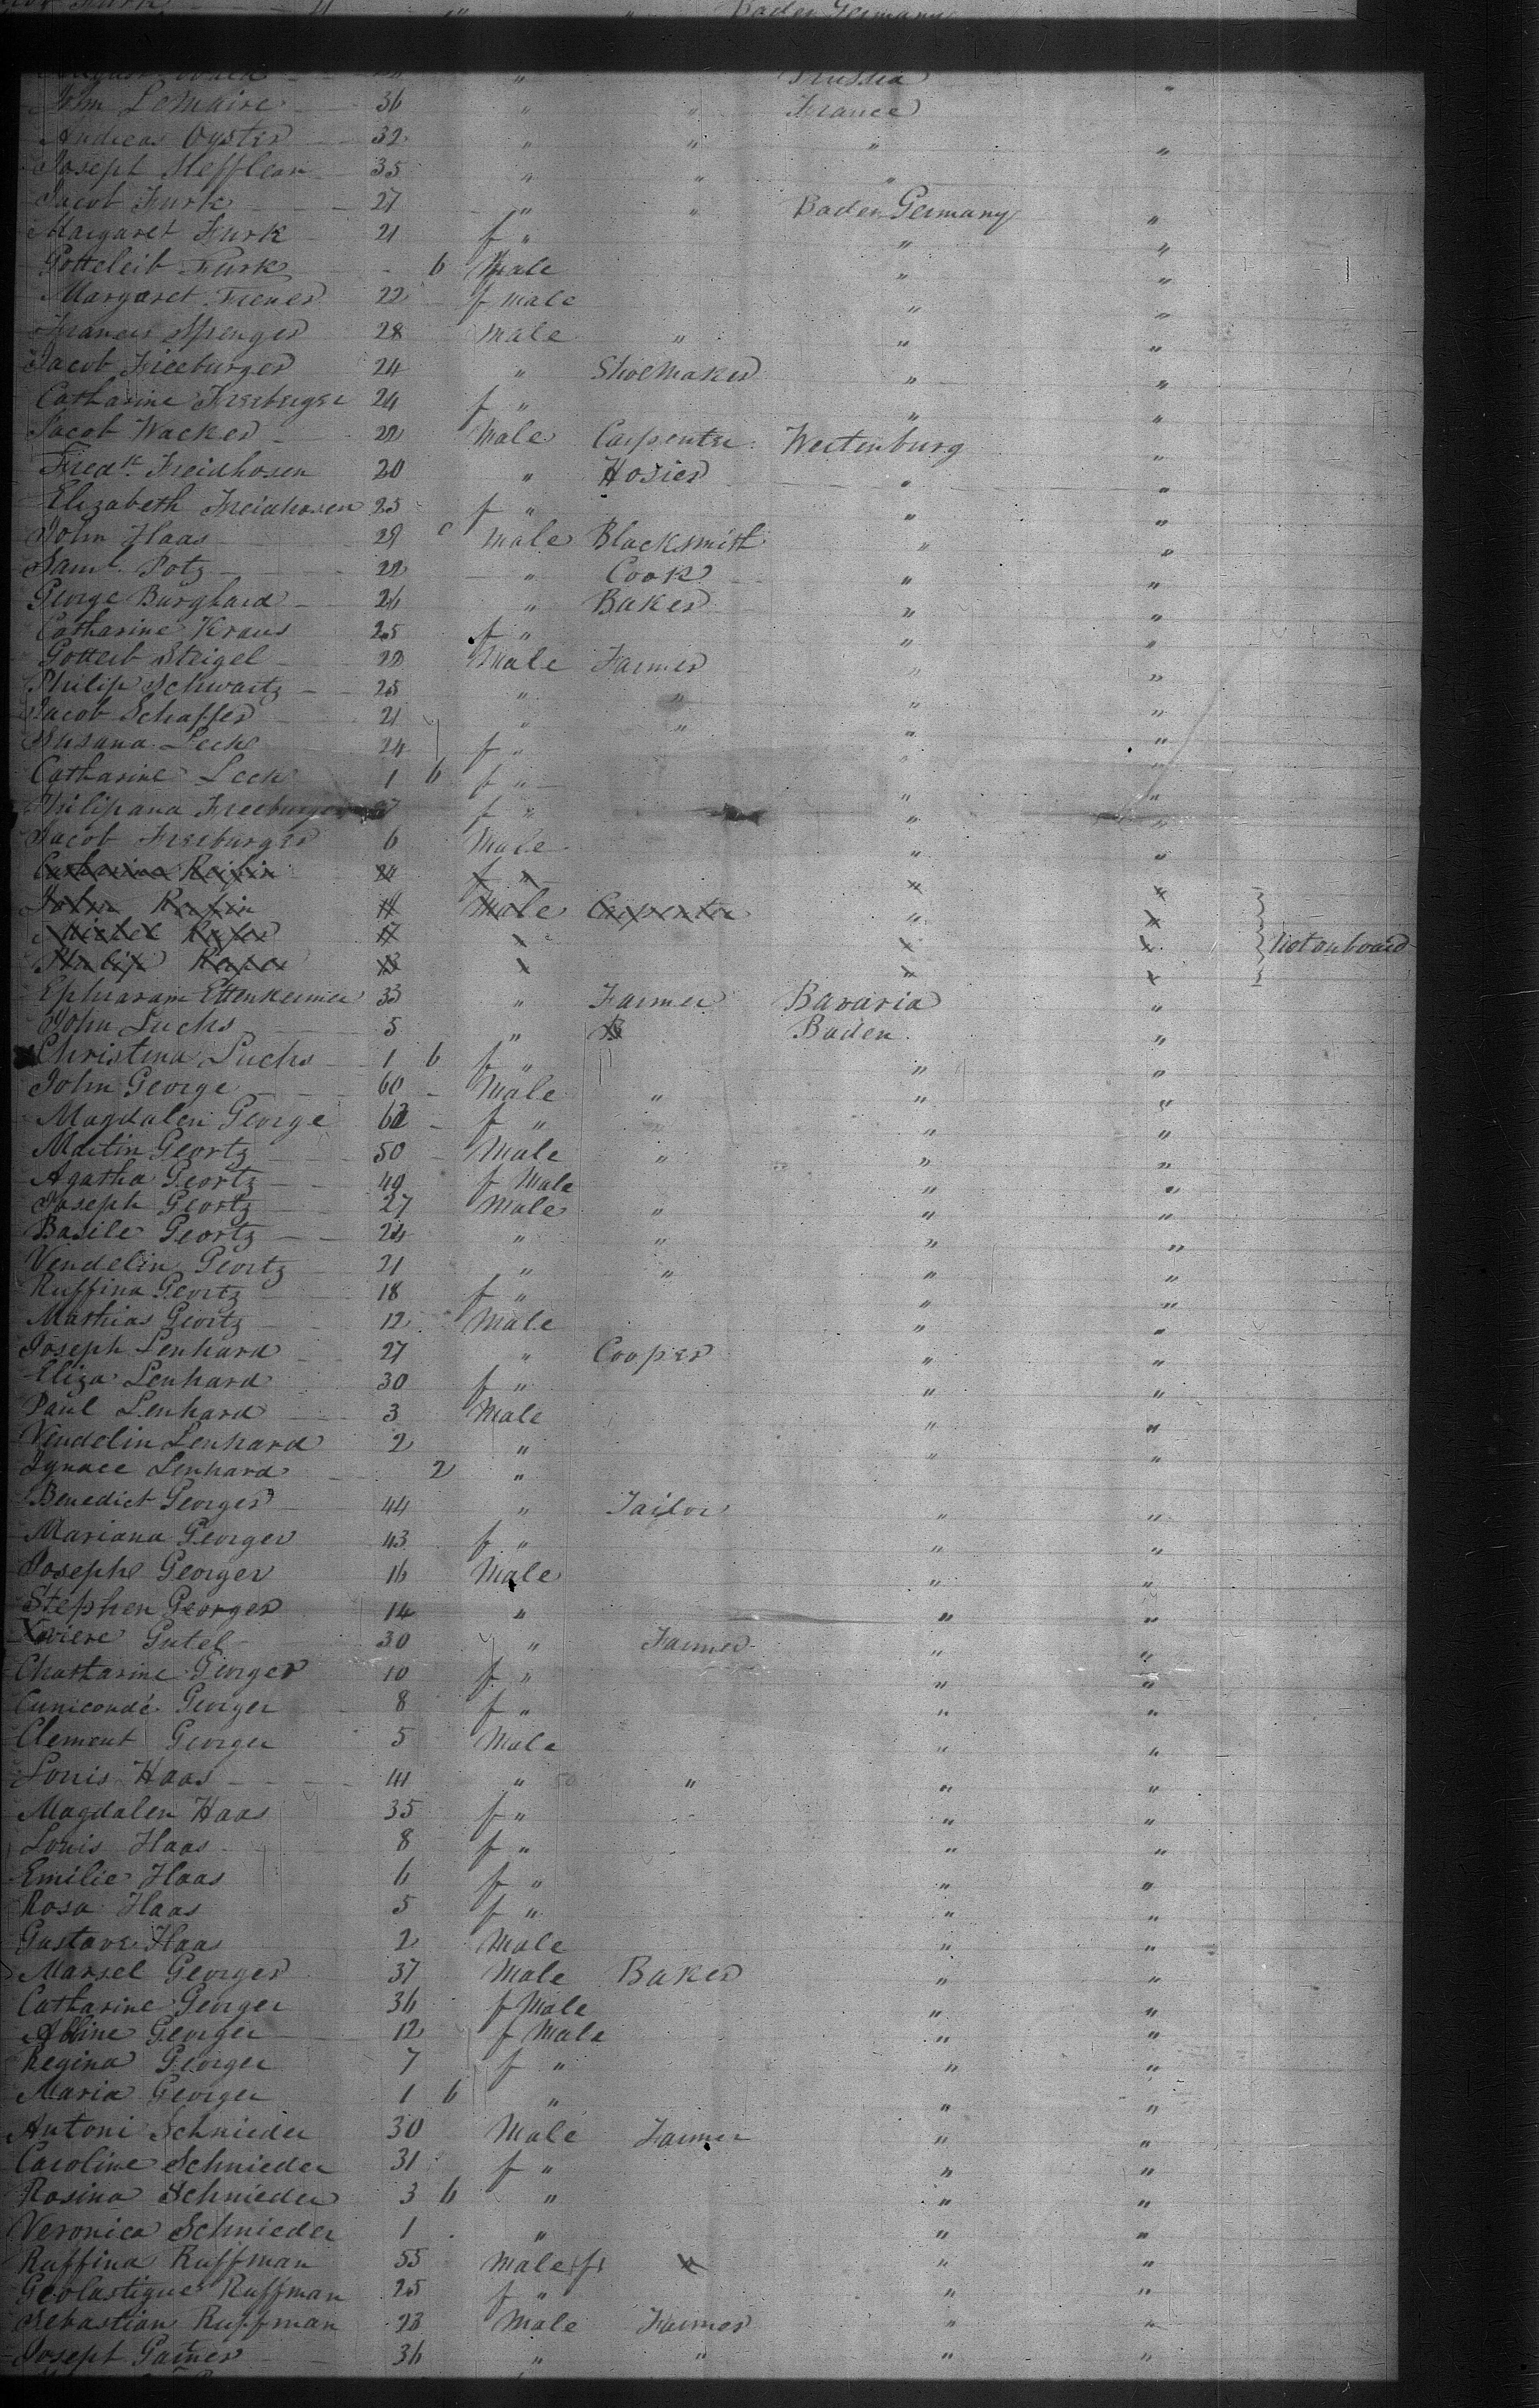 Baden Germany
Prussia "
John LeMaire 36 " " France
Andreas Oyster 32 " " " "
Joseph Hefflean 35 " " "
Jacob Furk 27 " " Baden Germany "
Margaret Furk 21 f " " "
Gotteleib Furk 6 Male " "
Margaret Frener 22 f male " "
Francis Spenger 28 Male " " "
Jacob Freeburger 24 " ShoeMaker " "
Catharine Freeburger 24 f " " "
Jacob Wacker 22 Male Carpenter Wertenburg "
Fredk. Freidhosen 20 " Hosier " "
Elizabeth Freidhosen 25 f " " "
John Haas 29 c Male Blacksmith " "
Saml. Potz 22 " Cook " "
George Burghard 26 " Baker " "
Catharine Kraus 25 f " " "
Gotteib Steigel 28 Male Farmer " "
Philip Schwartz 25 " " " "
Jacob Schaffer 21 " " " "
Susana Leck 24 f " " "
Catharine Leck 1 6 f " " "
Philipana Freeburger f " " "
Jacob Freeburger 6 Male " "
Catharina Rafin 24 f " " "
John Rafin Male Carpenter " "
Michel Rafer 17 " " " not on board
Philip Rafer 13 " " "
Ephraram Ettenheimer 33 " Farmer Bavaria "
John Luchs 5 " B Baden "
Christina Luchs 1 6 f " " "
John George 60 Male " " "
Magdalen George 62 f " " " "
Martin Geortz 50 Male " " "
Agatha Geortz 49 f Male " "
Joseph Geortz 27 Male " " "
Basile Geortz 24 " " " "
Vendelin Geortz 21 " " " "
Ruffina Geortz 18 f " " "
Mathias Geortz 12 Male " "
Joseph Lenhard 27 " Cooper " "
Eliza Lenhard 30 f " " "
Paul Lenhard 3 Male " "
Vendelin Lenhard 2 " " "
Ignace Lenhard 2 "
Benedict Georger 44 " Tailor " "
Mariana Georger 43 f " " "
Josephe Georger 16 Male " "
Stephen Georger 14 " " "
Xaviere Gutel 30 " Farmer " "
Chatharine Georger 10 f " " "
Cunicondé Georger 8 f " " "
Clement Georger 5 Male " "
Louis Haas 41 " " " "
Magdalen Haas 35 f " " "
Louis Haas 8 f " " "
Emilie Haas 6 f " " "
Rosa Haas 5 f " " "
Gustave Haas 2 Male " "
Marsel Georger 37 Male Baker " "
Catharine Georger 36 f Male " "
Albine Georger 12 f Male " "
Regina Georger 7 f " " "
Maria Georger 1 6 " " "
Antoni Schnieder 30 Male Farmer " "
Caroline Schnieder 31 f " " "
Rosina Schnieder 3 6 " " "
Veronica Schnieder 1 " " "
Ruffina Ruffman 55 Male f " "
Geolastique Ruffman 25 f " " "
Sebastian Ruffman 23 Male Farmer " "
Joseph Gatner 36 " " " "